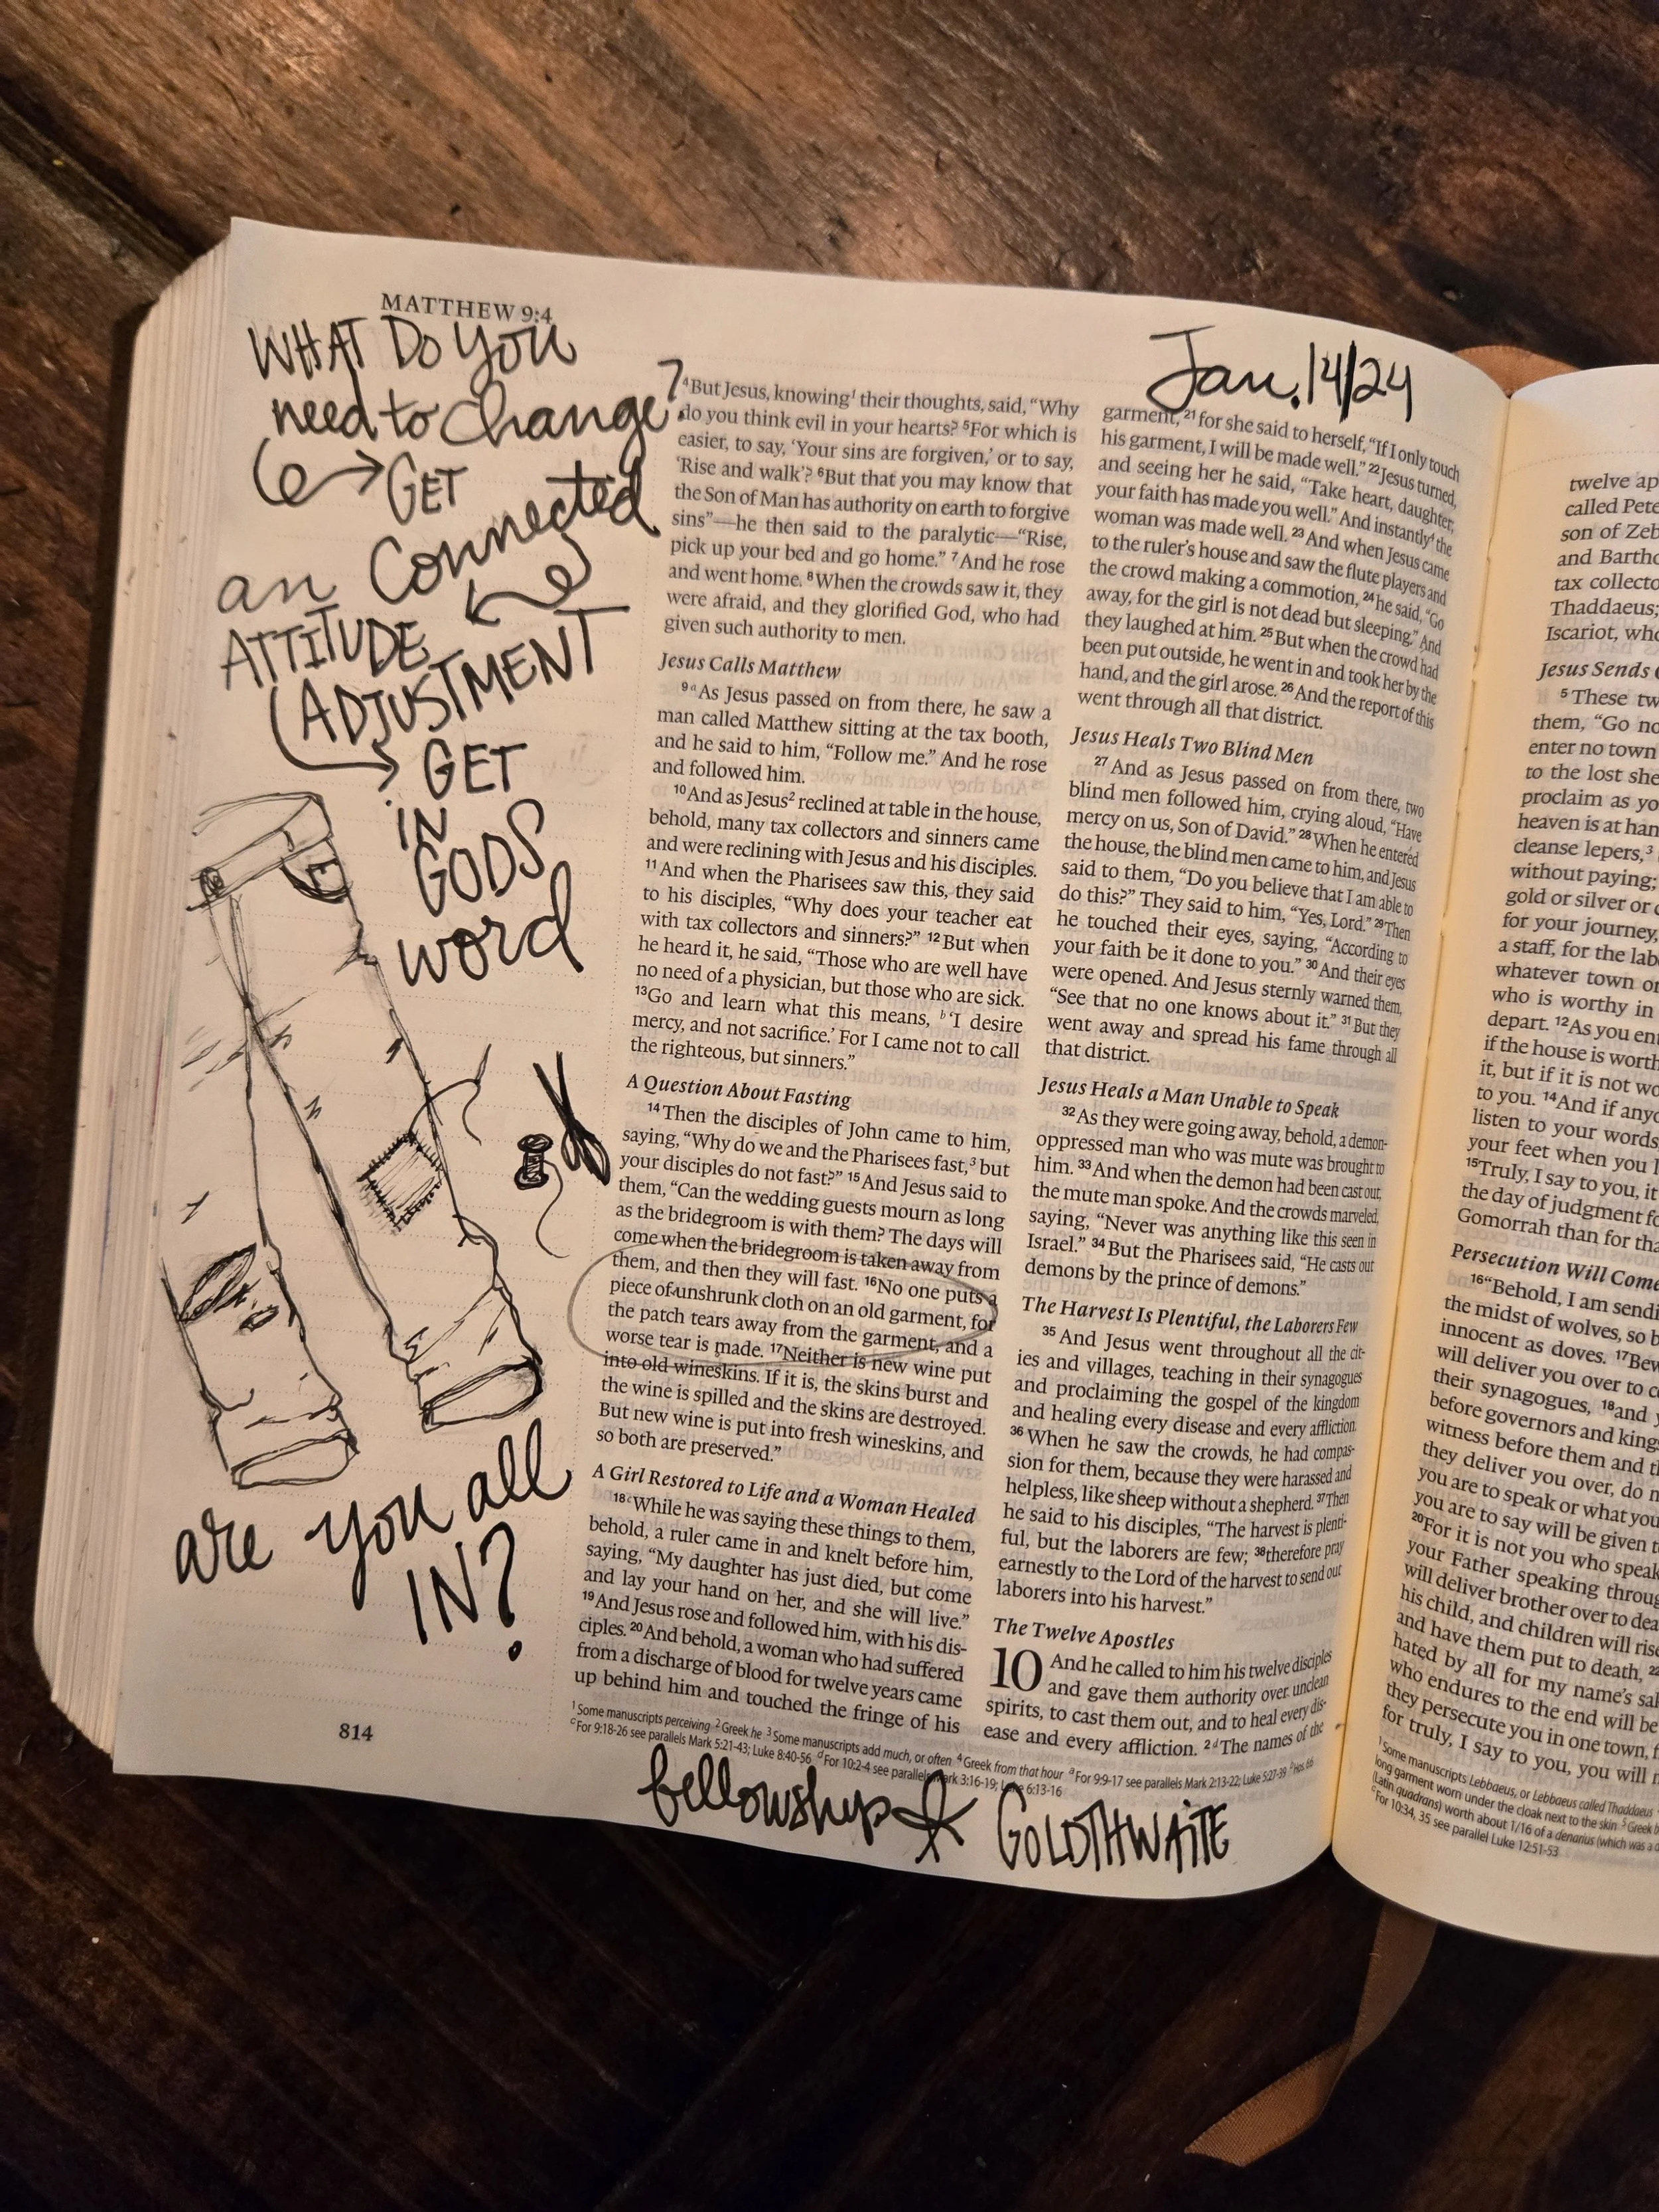 MATTHEW 9:4
WHAT DO YOU
need to change?
GET
Connected
an
ATTITUDE
ADJUSTMENT
GET
IN
GODS
word
are you all
IN?
814
Jan. 14/24
4 But Jesus, knowing1 their thoughts, said, “Why
do you think evil in your hearts? 5 For which is
easier, to say, ‘Your sins are forgiven,’ or to say,
‘Rise and walk’? 6 But that you may know that
the Son of Man has authority on earth to forgive
sins”—he then said to the paralytic—“Rise,
pick up your bed and go home.” 7 And he rose
and went home. 8 When the crowds saw it, they
were afraid, and they glorified God, who had
given such authority to men.
Jesus Calls Matthew
9 a As Jesus passed on from there, he saw a
man called Matthew sitting at the tax booth,
and he said to him, “Follow me.” And he rose
and followed him.
10 And as Jesus2 reclined at table in the house,
behold, many tax collectors and sinners came
and were reclining with Jesus and his disciples.
11 And when the Pharisees saw this, they said
to his disciples, “Why does your teacher eat
with tax collectors and sinners?” 12 But when
he heard it, he said, “Those who are well have
no need of a physician, but those who are sick.
13 Go and learn what this means, b ‘I desire
mercy, and not sacrifice.’ For I came not to call
the righteous, but sinners.”
A Question About Fasting
14 Then the disciples of John came to him,
saying, “Why do we and the Pharisees fast,3 but
your disciples do not fast?” 15 And Jesus said to
them, “Can the wedding guests mourn as long
as the bridegroom is with them? The days will
come when the bridegroom is taken away from
them, and then they will fast. 16 No one puts a
piece of unshrunk cloth on an old garment, for
the patch tears away from the garment, and a
worse tear is made. 17 Neither is new wine put
into old wineskins. If it is, the skins burst and
the wine is spilled and the skins are destroyed.
But new wine is put into fresh wineskins, and
so both are preserved.”
A Girl Restored to Life and a Woman Healed
18 c While he was saying these things to them,
behold, a ruler came in and knelt before him,
saying, “My daughter has just died, but come
and lay your hand on her, and she will live.”
19 And Jesus rose and followed him, with his dis-
ciples. 20 And behold, a woman who had suffered
from a discharge of blood for twelve years came
up behind him and touched the fringe of his
garment, 21 for she said to herself, “If I only touch
his garment, I will be made well.” 22 Jesus turned,
and seeing her he said, “Take heart, daughter;
your faith has made you well.” And instantly4 the
woman was made well. 23 And when Jesus came
to the ruler’s house and saw the flute players and
the crowd making a commotion, 24 he said, “Go
away, for the girl is not dead but sleeping.” And
they laughed at him. 25 But when the crowd had
been put outside, he went in and took her by the
hand, and the girl arose. 26 And the report of this
went through all that district.
Jesus Heals Two Blind Men
27 And as Jesus passed on from there, two
blind men followed him, crying aloud, “Have
mercy on us, Son of David.” 28 When he entered
the house, the blind men came to him, and Jesus
said to them, “Do you believe that I am able to
do this?” They said to him, “Yes, Lord.” 29 Then
he touched their eyes, saying, “According to
your faith be it done to you.” 30 And their eyes
were opened. And Jesus sternly warned them,
“See that no one knows about it.” 31 But they
went away and spread his fame through all
that district.
Jesus Heals a Man Unable to Speak
32 As they were going away, behold, a demon-
oppressed man who was mute was brought to
him. 33 And when the demon had been cast out,
the mute man spoke. And the crowds marveled,
saying, “Never was anything like this seen in
Israel.” 34 But the Pharisees said, “He casts out
demons by the prince of demons.”
The Harvest Is Plentiful, the Laborers Few
35 And Jesus went throughout all the cit-
ies and villages, teaching in their synagogues
and proclaiming the gospel of the kingdom
and healing every disease and every affliction.
36 When he saw the crowds, he had compas-
sion for them, because they were harassed and
helpless, like sheep without a shepherd. 37 Then
he said to his disciples, “The harvest is plenti-
ful, but the laborers are few; 38 therefore pray
earnestly to the Lord of the harvest to send out
laborers into his harvest.”
The Twelve Apostles
10 And he called to him his twelve disciples
and gave them authority over unclean
spirits, to cast them out, and to heal every dis-
ease and every affliction. 2 d The names of the
1 Some manuscripts perceiving 2 Greek he 3 Some manuscripts add much, or often 4 Greek from that hour a For 9:9-17 see parallels Mark 2:13-22; Luke 5:27-39 b Hos. 6:6
c For 9:18-26 see parallels Mark 5:21-43; Luke 8:40-56 d For 10:2-4 see parallels Mark 3:16-19; Luke 6:13-16
fellowship GOLDTHWAITE
twelve ap
called Pete
son of Zeb
and Bartho
tax collecto
Thaddaeus;
Iscariot, who
Jesus Sends
5 These tw
them, “Go no
enter no town
to the lost she
proclaim as yo
heaven is at han
cleanse lepers,3
without paying;
gold or silver or
for your journey,
a staff, for the lab
whatever town or
who is worthy in
depart. 12 As you ent
if the house is worth
it, but if it is not wo
to you. 14 And if anyo
listen to your words
your feet when you l
15 Truly, I say to you, it
the day of judgment fo
Gomorrah than for tha
Persecution Will Come
16 “Behold, I am sendi
the midst of wolves, so b
innocent as doves. 17 Bew
will deliver you over to c
their synagogues, 18 and y
before governors and kings
witness before them and th
they deliver you over, do n
you are to speak or what you
you are to say will be given t
20 For it is not you who speak
your Father speaking throug
will deliver brother over to dea
his child, and children will rise
and have them put to death, 22
hated by all for my name’s sak
who endures to the end will be
they persecute you in one town, f
for truly, I say to you, you will n
1 Some manuscripts Lebbaeus, or Lebbaeus called Thaddaeus
long garment worn under the cloak next to the skin 5 Greek b
(Latin quadrans) worth about 1/16 of a denarius (which was a d
c For 10:34, 35 see parallel Luke 12:51-53